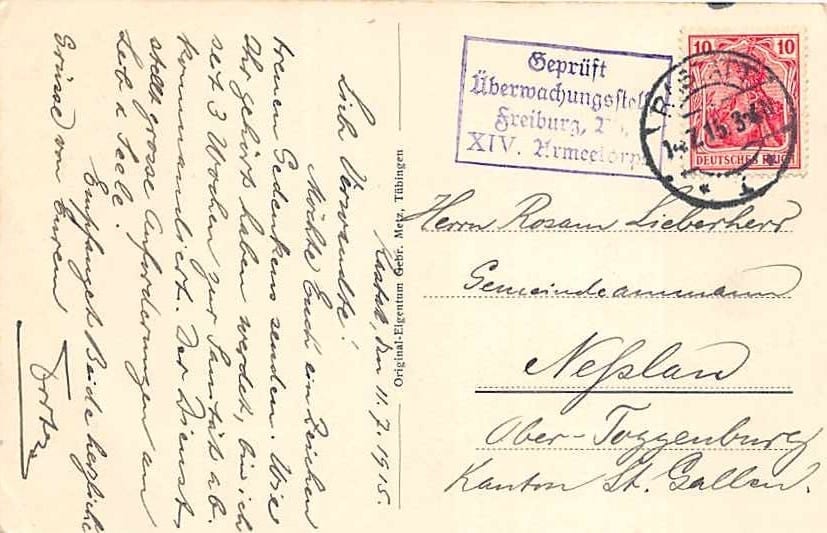 Rastatt, den 11. 7. 1915.
Liebe Verwandte!
Möchte Euch ein Zeichen
treuen Gedenkens senden. Wie
Ihr gehört haben werdet, bin ich
seit 3 Wochen zur Sanität ab-
kommandiert. Der Dienst
stellt grosse Anforderungen an
Leib & Seele.
Empfanget Beide herzliche
Grüsse von Eurem
Original-Eigentum Gebr. Metz, Tübingen
Geprüft
Überwachungsstelle
Freiburg,
XIV. Armeekorps
10 10
DEUTSCHES REICH
RASTATT
Herrn Rosam Lieberherr
Gemeindeammann
Neßlau
Ober-Toggenburg
Kanton St. Gallen.